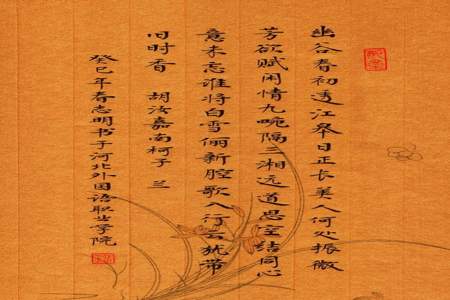 幽谷春初透江皋日正长美人何处振微
芳欲赋闲情九畹隔三湘远道思空结同心
意未忘谁将白雪俪新腔歌入行云犹带
旧时香 胡汝嘉南柯子 兰
癸巳年春志明书于河北外国语职业学院